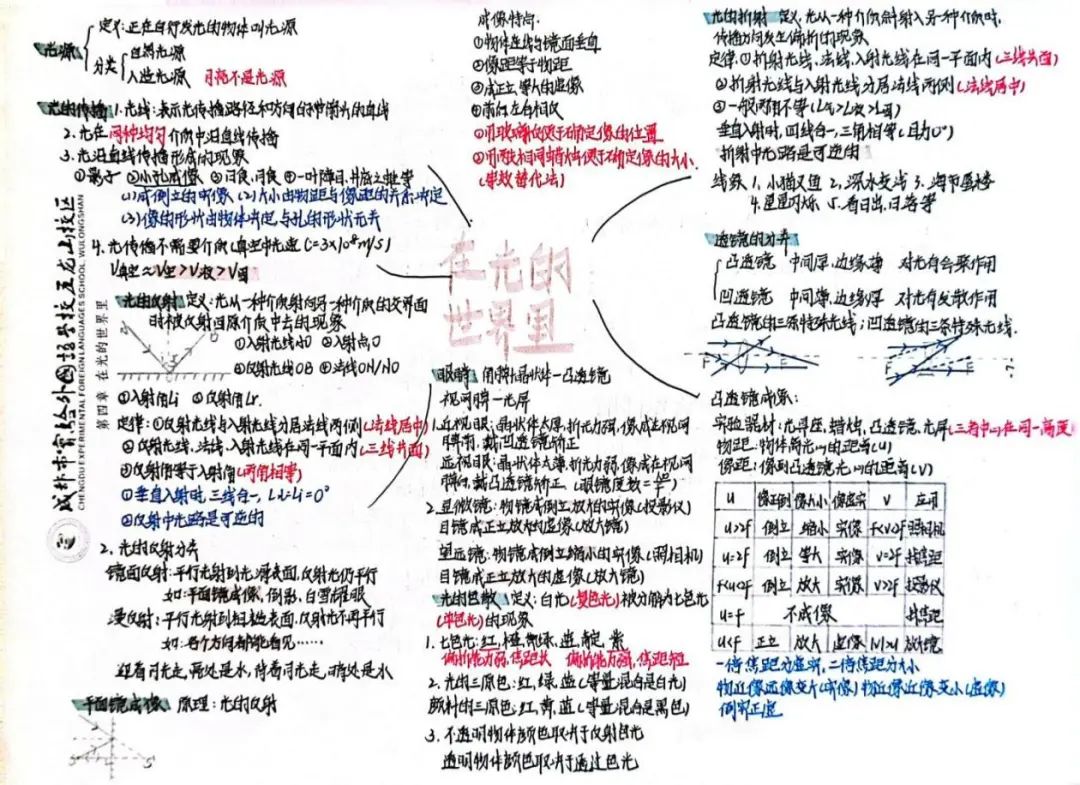 光源
定义:正在自行发光的物体叫光源
分类
自然光源
人造光源 月亮不是光源
光的传播 1.光线:表示光传播路径和方向的带箭头的直线
2.光在同种均匀介质中沿直线传播
3.光沿直线传播形成的现象
①影子 ②小孔成像 ③日食,月食 ④一叶障目,井底之蛙等
(1)成倒立的实像 (2)大小由物距与像距的关系决定
(3)像的形状由物体决定,与孔的形状无关
4.光传播不需要介质(真空中光速 C=3×10⁸m/s)
V真空≈V空>V液>V固
光的反射 定义:光从一种介质射向另一种介质的交界面
时被反射回原介质中去的现象
①入射光线AO ②入射点O
③反射光线OB ④法线ON/NO
⑤入射角Li ⑥反射角Lr.
定律:①反射光线与入射光线分居法线两侧(法线居中)
②反射光线、法线、入射光线在同一平面内(三线共面)
③反射角等于入射角(两角相等)
①垂直入射时,三线合一,Lr=Li=0°
②反射中光路是可逆的
2.光的反射分类
镜面反射:平行光射到光滑表面,反射光仍平行
如:平面镜成像,倒影,白雪耀眼
漫反射:平行光射到粗糙表面,反射光不再平行
如:各个方向都能看见……
迎着月光走,亮处是水,背着月光走,暗处是水
平面镜成像 原理:光的反射
S S'
成像特点:
①物像连线与镜面垂直
②像距等于物距
③成正立,等大的虚像
④前后左右相反
①用玻璃板便于确定像的位置
②用两支相同蜡烛便于确定像的大小
(等效替代法)
在光的
世界里
眼睛 角膜+晶状体—凸透镜
视网膜—光屏
1.近视眼:晶状体太厚,折光力强,像成在视网
膜前,戴凹透镜矫正
远视眼:晶状体太薄,折光力弱,像成在视网
膜后,戴凸透镜矫正
2.显微镜:物镜成倒立放大的实像(投影仪)
目镜成正立放大的虚像(放大镜)
望远镜:物镜成倒立缩小的实像(照相机)
目镜成正立放大的虚像(放大镜)
光的色散 定义:白光(复色光)被分解为七色光
(单色光)的现象
1.七色光:红,橙,黄,绿,蓝,靛,紫
偏折能力弱,焦距长 偏折能力强,焦距短
2.光的三原色:红,绿,蓝(等量混合是白光)
颜料的三原色:红,黄,蓝(等量混合是黑色)
3.不透明物体颜色取决于反射色光
透明物体颜色取决于通过色光
光的折射 定义:光从一种介质斜射入另一种介质时,
传播方向发生偏折的现象
定律:①折射光线、法线、入射光线在同一平面内(三线共面)
②折射光线与入射光线分居法线两侧(法线居中)
③一般两角不等
垂直入射时,四线合一,三角相等(且为0°)
折射中光路是可逆的
现象 1.小猫叉鱼 2.深水变浅 3.海市蜃楼
4.星星闪烁 5.看日出,日落等
透镜的分类
凸透镜 中间厚,边缘薄 对光有会聚作用
凹透镜 中间薄,边缘厚 对光有发散作用
凸透镜的三条特殊光线;凹透镜的三条特殊光线.
凸透镜成像:
实验器材:光具座,蜡烛,凸透镜,光屏(三者中心在同一高度)
物距:物体离光心的距离(u)
像距:像到凸透镜光心的距离(v)
u 像正倒 像大小 像虚实 v 应用
u>2f 倒立 缩小 实像 f<v<2f 照相机
u=2f 倒立 等大 实像 v=2f 找焦距
f<u<2f 倒立 放大 实像 v>2f 投影仪
u=f 不成像 找焦距
u<f 正立 放大 虚像 |v|>u 放大镜
一倍焦距分虚实,二倍焦距分大小
物近像远像变大(实像) 物近像近像变小(虚像)
倒实正虚
成都市实验外国语学校五龙山校区
CHENGDU EXPERIMENTAL FOREIGN LANGUAGES SCHOOL, WULONGSHAN
第四章 在光的世界里